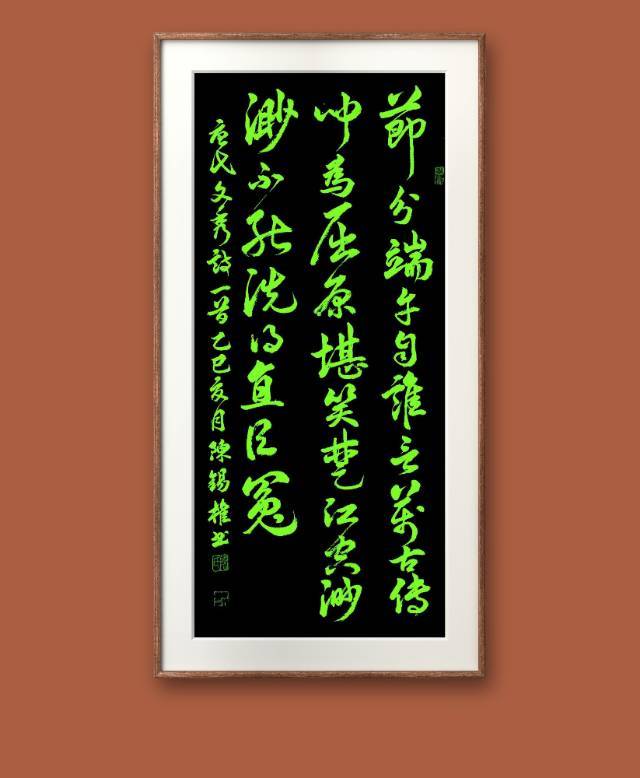 節分端午自誰言萬古傳
聞為屈原堪笑楚江空渺
渺不能洗得直臣冤
唐代文秀詩一首乙巳夏月陳錫權書